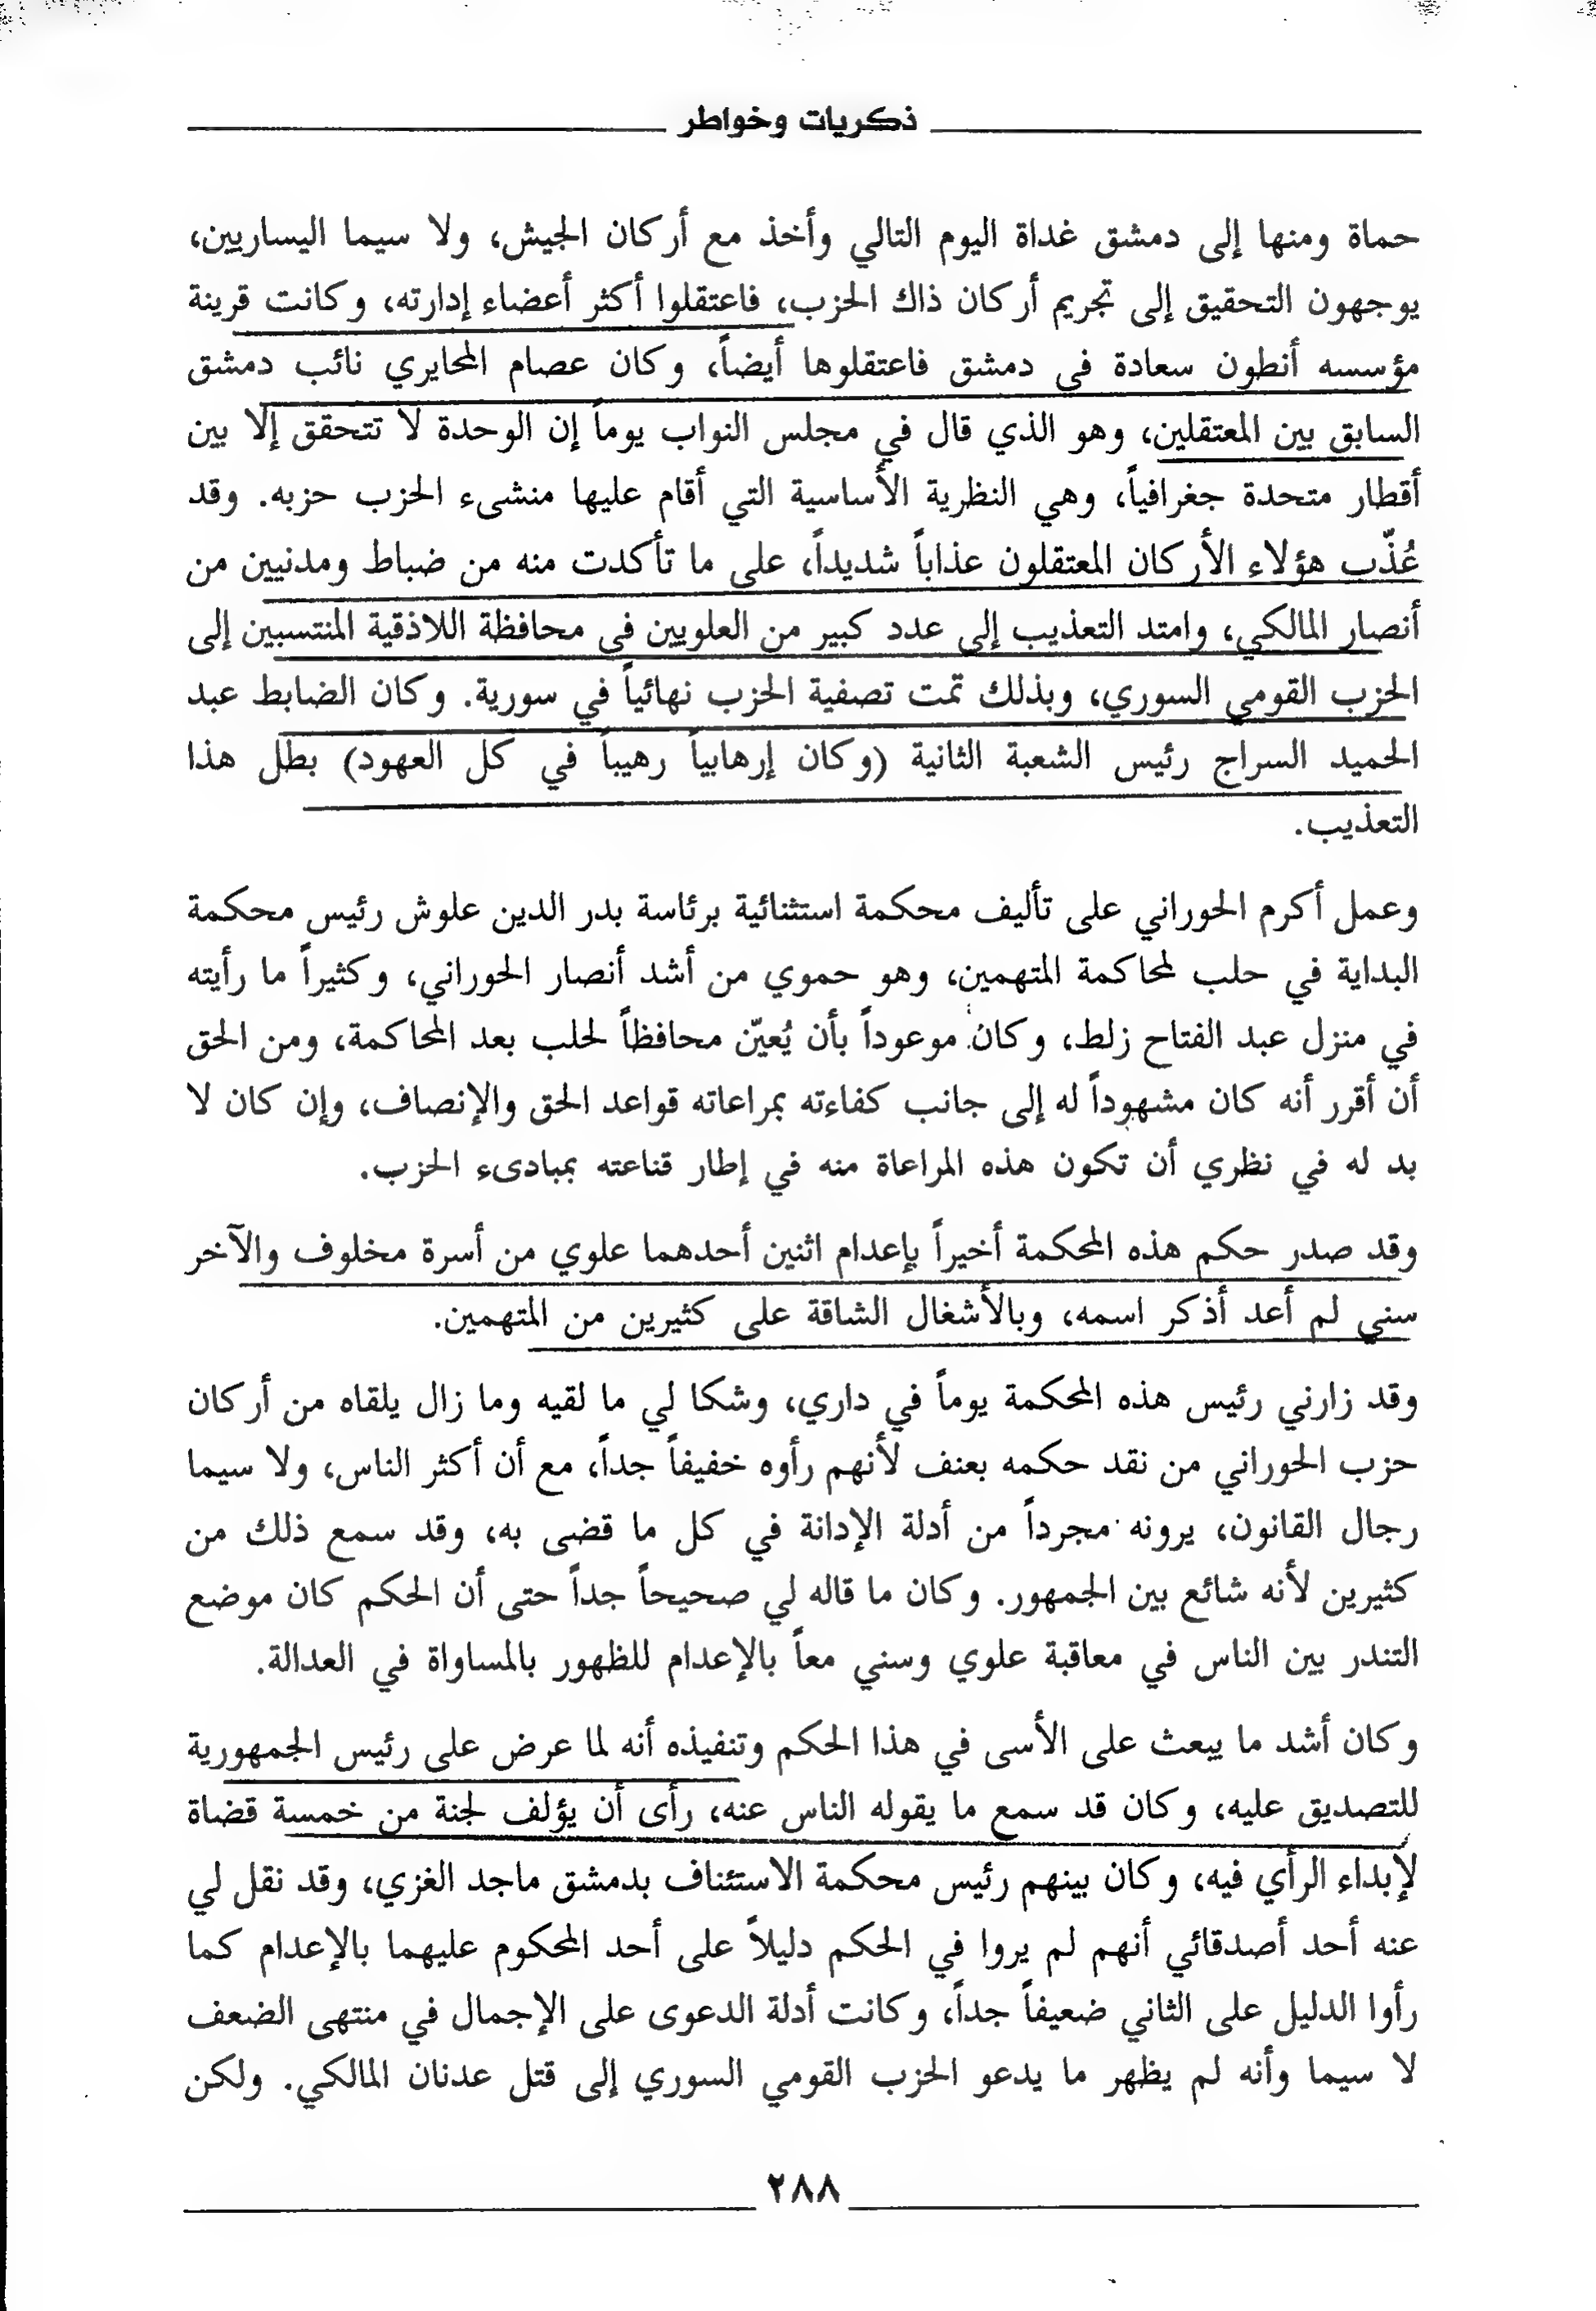 ذكريات وخواطر
حماة ومنها إلى دمشق غداة اليوم التالي وأخذ مع أركان الجيش، ولا سيما اليساريين،
يوجهون التحقيق إلى تجريم أركان ذاك الحزب، فاعتقلوا أكثر أعضاء إدارته، وكانت قرينة
مؤسسه أنطون سعادة في دمشق فاعتقلوها أيضاً، وكان عصام المحايري نائب دمشق
السابق بين المعتقلين، وهو الذي قال في مجلس النواب يوماً إن الوحدة لا تتحقق إلا بين
أقطار متحدة جغرافياً، وهي النظرية الأساسية التي أقام عليها منشىء الحزب حزبه. وقد
عُذّب هؤلاء الأركان المعتقلون عذاباً شديداً، على ما تأكدت منه من ضباط ومدنيين من
أنصار المالكي، وامتد التعذيب إلى عدد كبير من العلويين في محافظة اللاذقية المنتسبين إلى
الحزب القومي السوري، وبذلك تمت تصفية الحزب نهائياً في سورية. وكان الضابط عبد
الحميد السراج رئيس الشعبة الثانية (وكان إرهابياً رهيباً في كل العهود) بطل هذا
التعذيب.
وعمل أكرم الحوراني على تأليف محكمة استثنائية برئاسة بدر الدين علوش رئيس محكمة
البداية في حلب لمحاكمة المتهمين، وهو حموي من أشد أنصار الحوراني، وكثيراً ما رأيته
في منزل عبد الفتاح زلط، وكان موعوداً بأن يُعيّن محافظاً لحلب بعد المحاكمة، ومن الحق
أن أقرر أنه كان مشهوداً له إلى جانب كفاءته بمراعاته قواعد الحق والإنصاف، وإن كان لا
بد له في نظري أن تكون هذه المراعاة منه في إطار قناعته بمبادىء الحزب.
وقد صدر حكم هذه المحكمة أخيراً بإعدام اثنين أحدهما علوي من أسرة مخلوف والآخر
سني لم أعد أذكر اسمه، وبالأشغال الشاقة على كثيرين من المتهمين.
وقد زارني رئيس هذه المحكمة يوماً في داري، وشكا لي ما لقيه وما زال يلقاه من أركان
حزب الحوراني من نقد حكمه بعنف لأنهم رأوه خفيفاً جداً، مع أن أكثر الناس، ولا سيما
رجال القانون، يرونه مجرداً من أدلة الإدانة في كل ما قضى به، وقد سمع ذلك من
كثيرين لأنه شائع بين الجمهور. وكان ما قاله لي صحيحاً جداً حتى أن الحكم كان موضع
التندر بين الناس في معاقبة علوي وسني معاً بالإعدام للظهور بالمساواة في العدالة.
وكان أشد ما يبعث على الأسى في هذا الحكم وتنفيذه أنه لما عرض على رئيس الجمهورية
للتصديق عليه، وكان قد سمع ما يقوله الناس عنه، رأى أن يؤلف لجنة من خمسة قضاة
لإبداء الرأي فيه، وكان بينهم رئيس محكمة الاستئناف بدمشق ماجد الغزي، وقد نقل لي
عنه أحد أصدقائي أنهم لم يروا في الحكم دليلاً على أحد المحكوم عليهما بالإعدام كما
رأوا الدليل على الثاني ضعيفاً جداً، وكانت أدلة الدعوى على الإجمال في منتهى الضعف
لا سيما وأنه لم يظهر ما يدعو الحزب القومي السوري إلى قتل عدنان المالكي. ولكن
٢٨٨